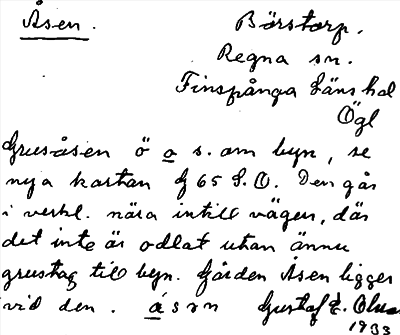 Åsen.
Börstorp.
Regna sn.
Finspånga läns hd
Ögl
Grusåsen ö o s. om byn, se
nya kartan G 65 S.O. Den går
i verkl. nära intill vägen, där
det inte är odlat utan ännu
grustag till byn. Gården Åsen ligger
vid den. åsan Gustaf E. Olus
1933